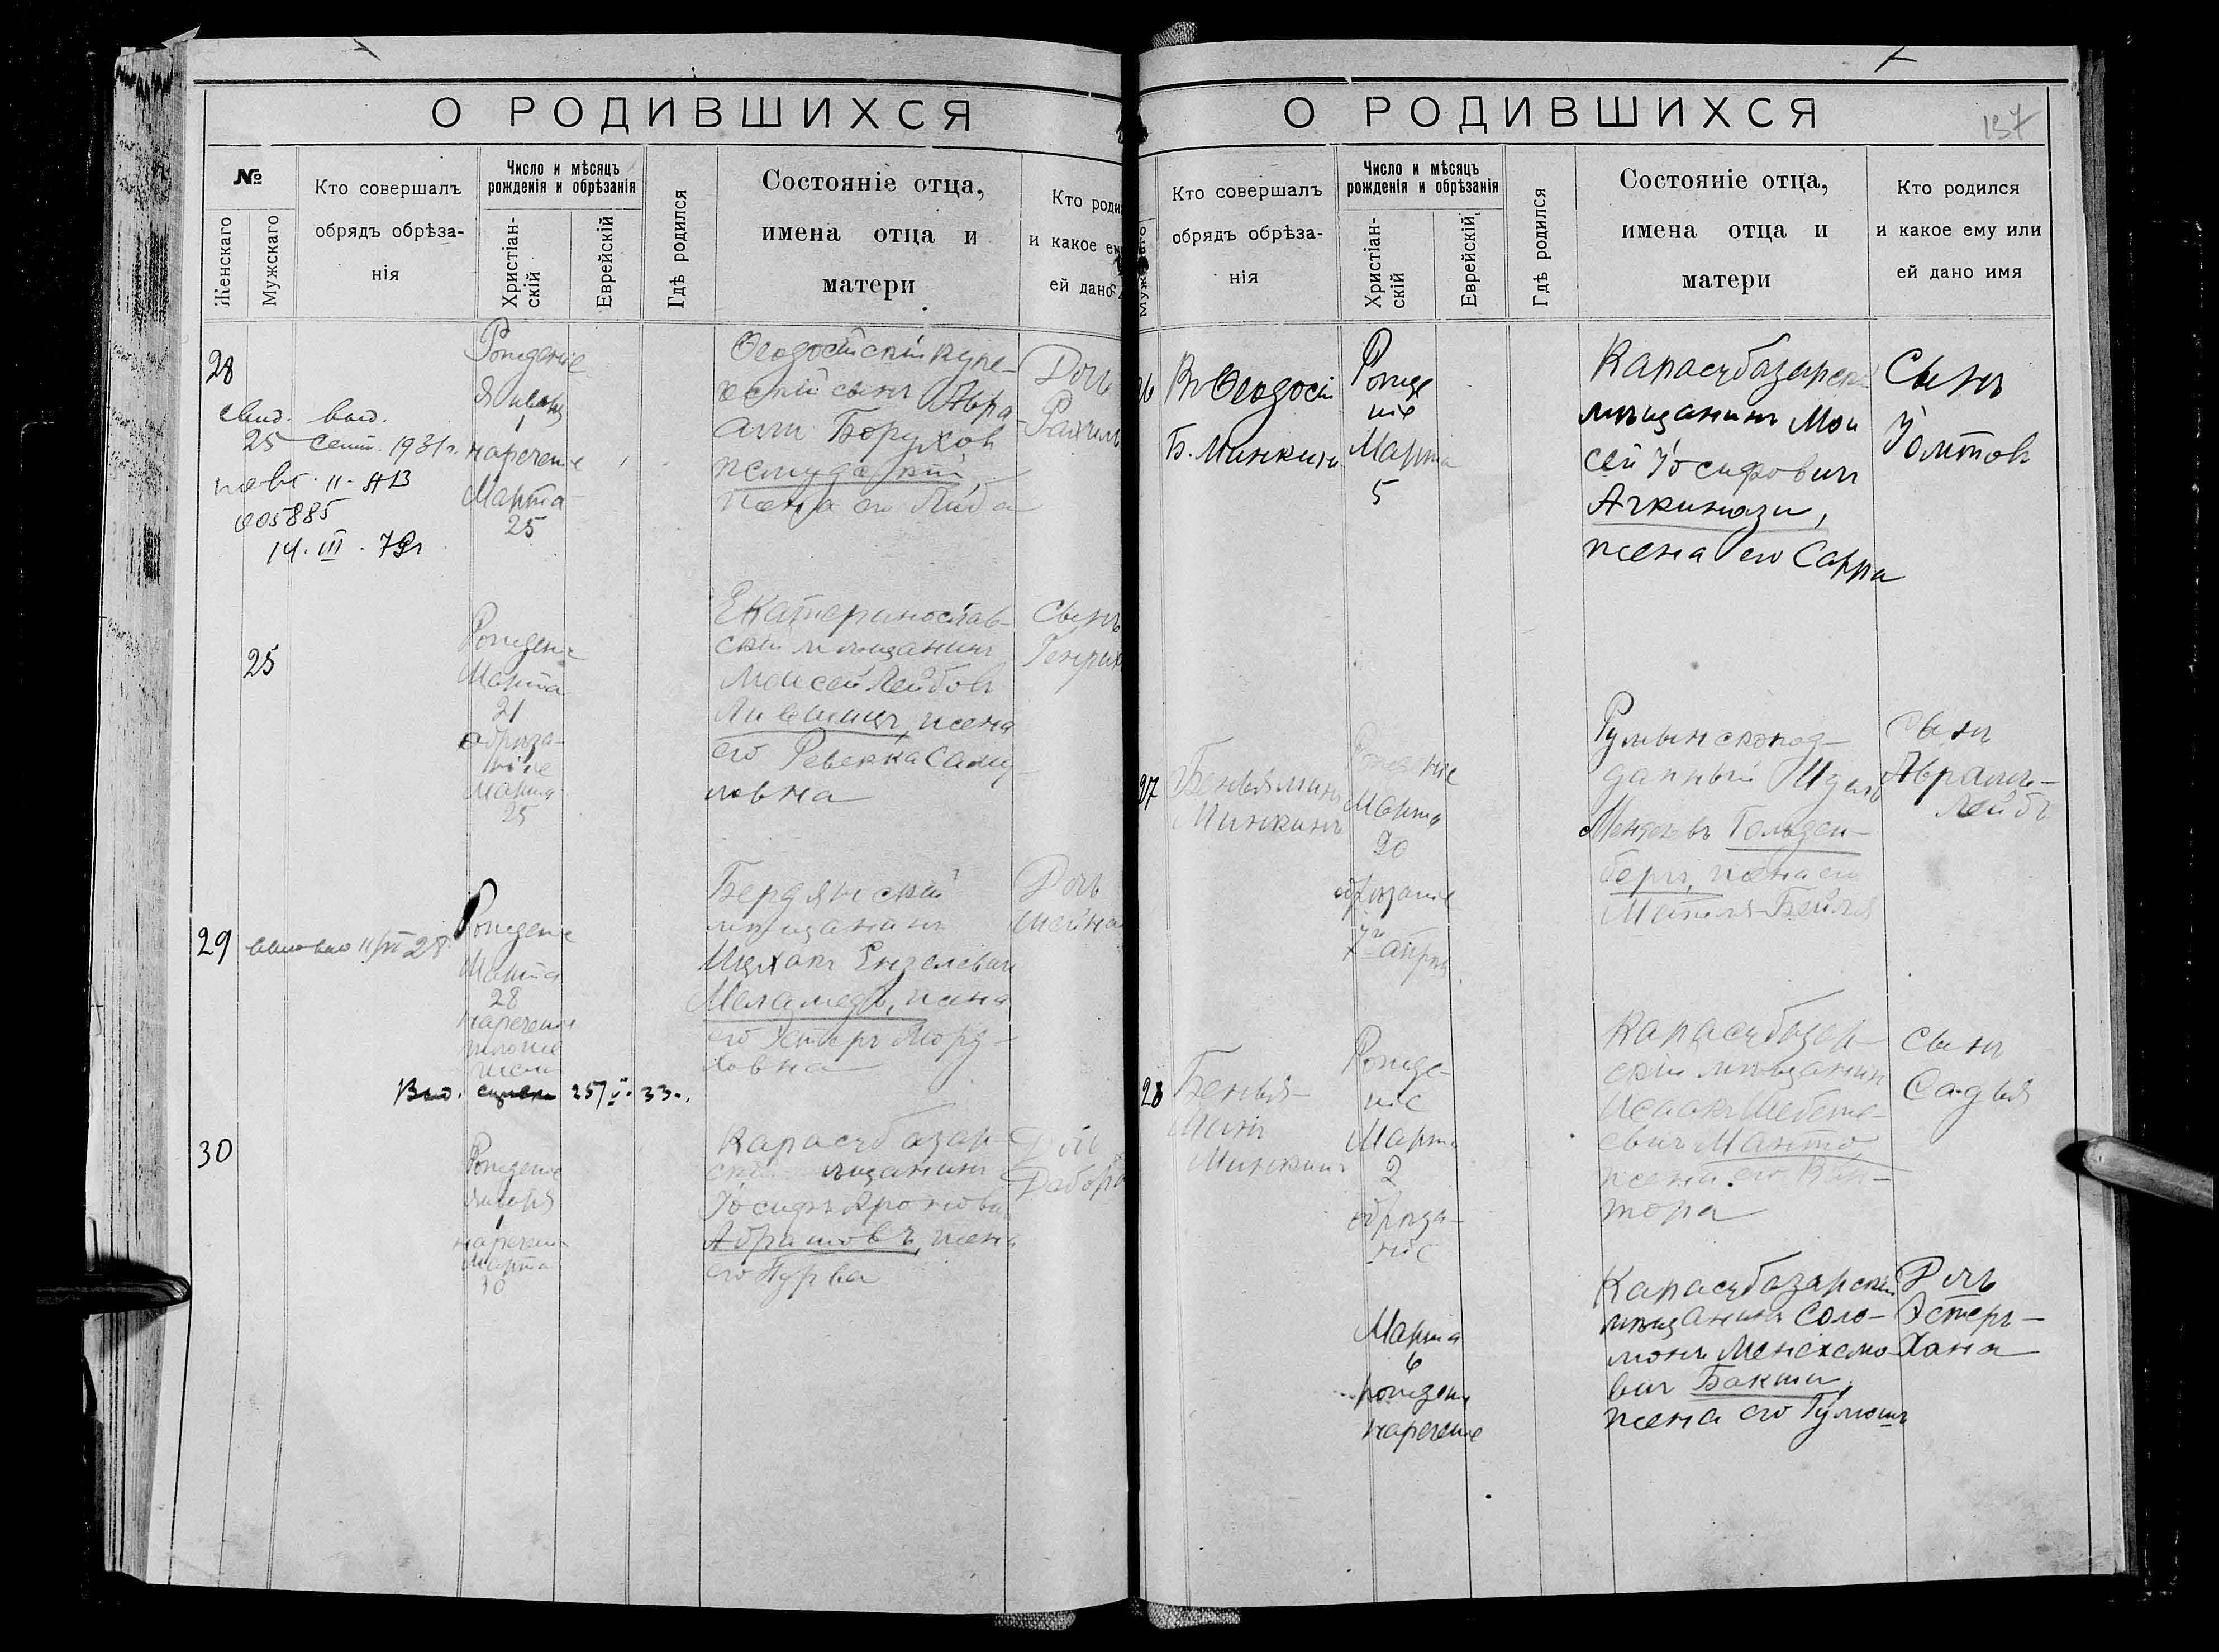 О РОДИВШИХСЯ
№
Женскаго
Мужскаго
Кто совершалъ
обрядъ обрѣза-
нія
Число и мѣсяцъ
рожденія и обрѣзанія
Христіан-
скій
Еврейскій
Гдѣ родился
Состояніе отца,
имена отца и
матери
Кто роди
и какое ем
ей дано
28
Рожденіе
1
нареченіе
Марта
25
25 сент. 1931 г.
005885
14. III.
Ѳеодосійскій купе-
ческій сынъ Авра
амъ Борухов
жена его Либа
Дочь
Рахиль
25
Рожденіе
Марта
21
обрѣза-
ніе
Марта
25
Екатеринослав-
скій мѣщанинъ
Моисей Лейбов
Лившиц, жена
его Ревекка Саму
ловна
Сынъ
Генрих
29
Рожденіе
Марта
28
нареченіе
Бердянскій
мѣщанинъ
Ицхакъ
Меламедъ, жена
его Эстеръ Морду-
ховна
Дочь
Шейна
Выд. 25/V. 33 г.
30
Рожденіе
Января
1
нареченіе
Марта
30
Карасубазар-
скій мѣщанинъ
Іосифъ Ароновъ
Абрамовъ, жена
его Пурва
Дочь
Дебора
О РОДИВШИХСЯ
137
Кто совершалъ
обрядъ обрѣза-
нія
Число и мѣсяцъ
рожденія и обрѣзанія
Христіан-
скій
Еврейскій
Гдѣ родился
Состояніе отца,
имена отца и
матери
Кто родился
и какое ему или
ей дано имя
Въ Ѳеодосіи
Б. Минкинъ
Рожде
ніе
Марта
5
Карасубазарскій
мѣщанинъ Мои
сей Іосифович
Ачкинази,
жена его Сарра
Сынъ
Іомтов
27
Беньяминъ
Минкинъ
Рожденіе
Марта
20
обрѣзаніе
7го апрѣля
Румынскопод-
данный Идель
Менделевъ Гольден-
бергъ, жена его
Матля-Бейля
Сынъ
Аврамъ-
Лейбъ
28
Бенья-
минъ
Минкинъ
Рожде-
ніе
Марта
2
обрѣза-
ніе
Карасубазар-
скій мѣщанин
Исаакъ Шебете-
евичъ Манто,
жена его Вик-
тора
Сынъ
Садья
Марта
6
рожденіе
нареченіе
Карасубазарскій
мѣщанинъ Соло-
монъ Менахемо-
вич Бакши,
жена его Гулюшъ
Дочь
Эстеръ-
Хана